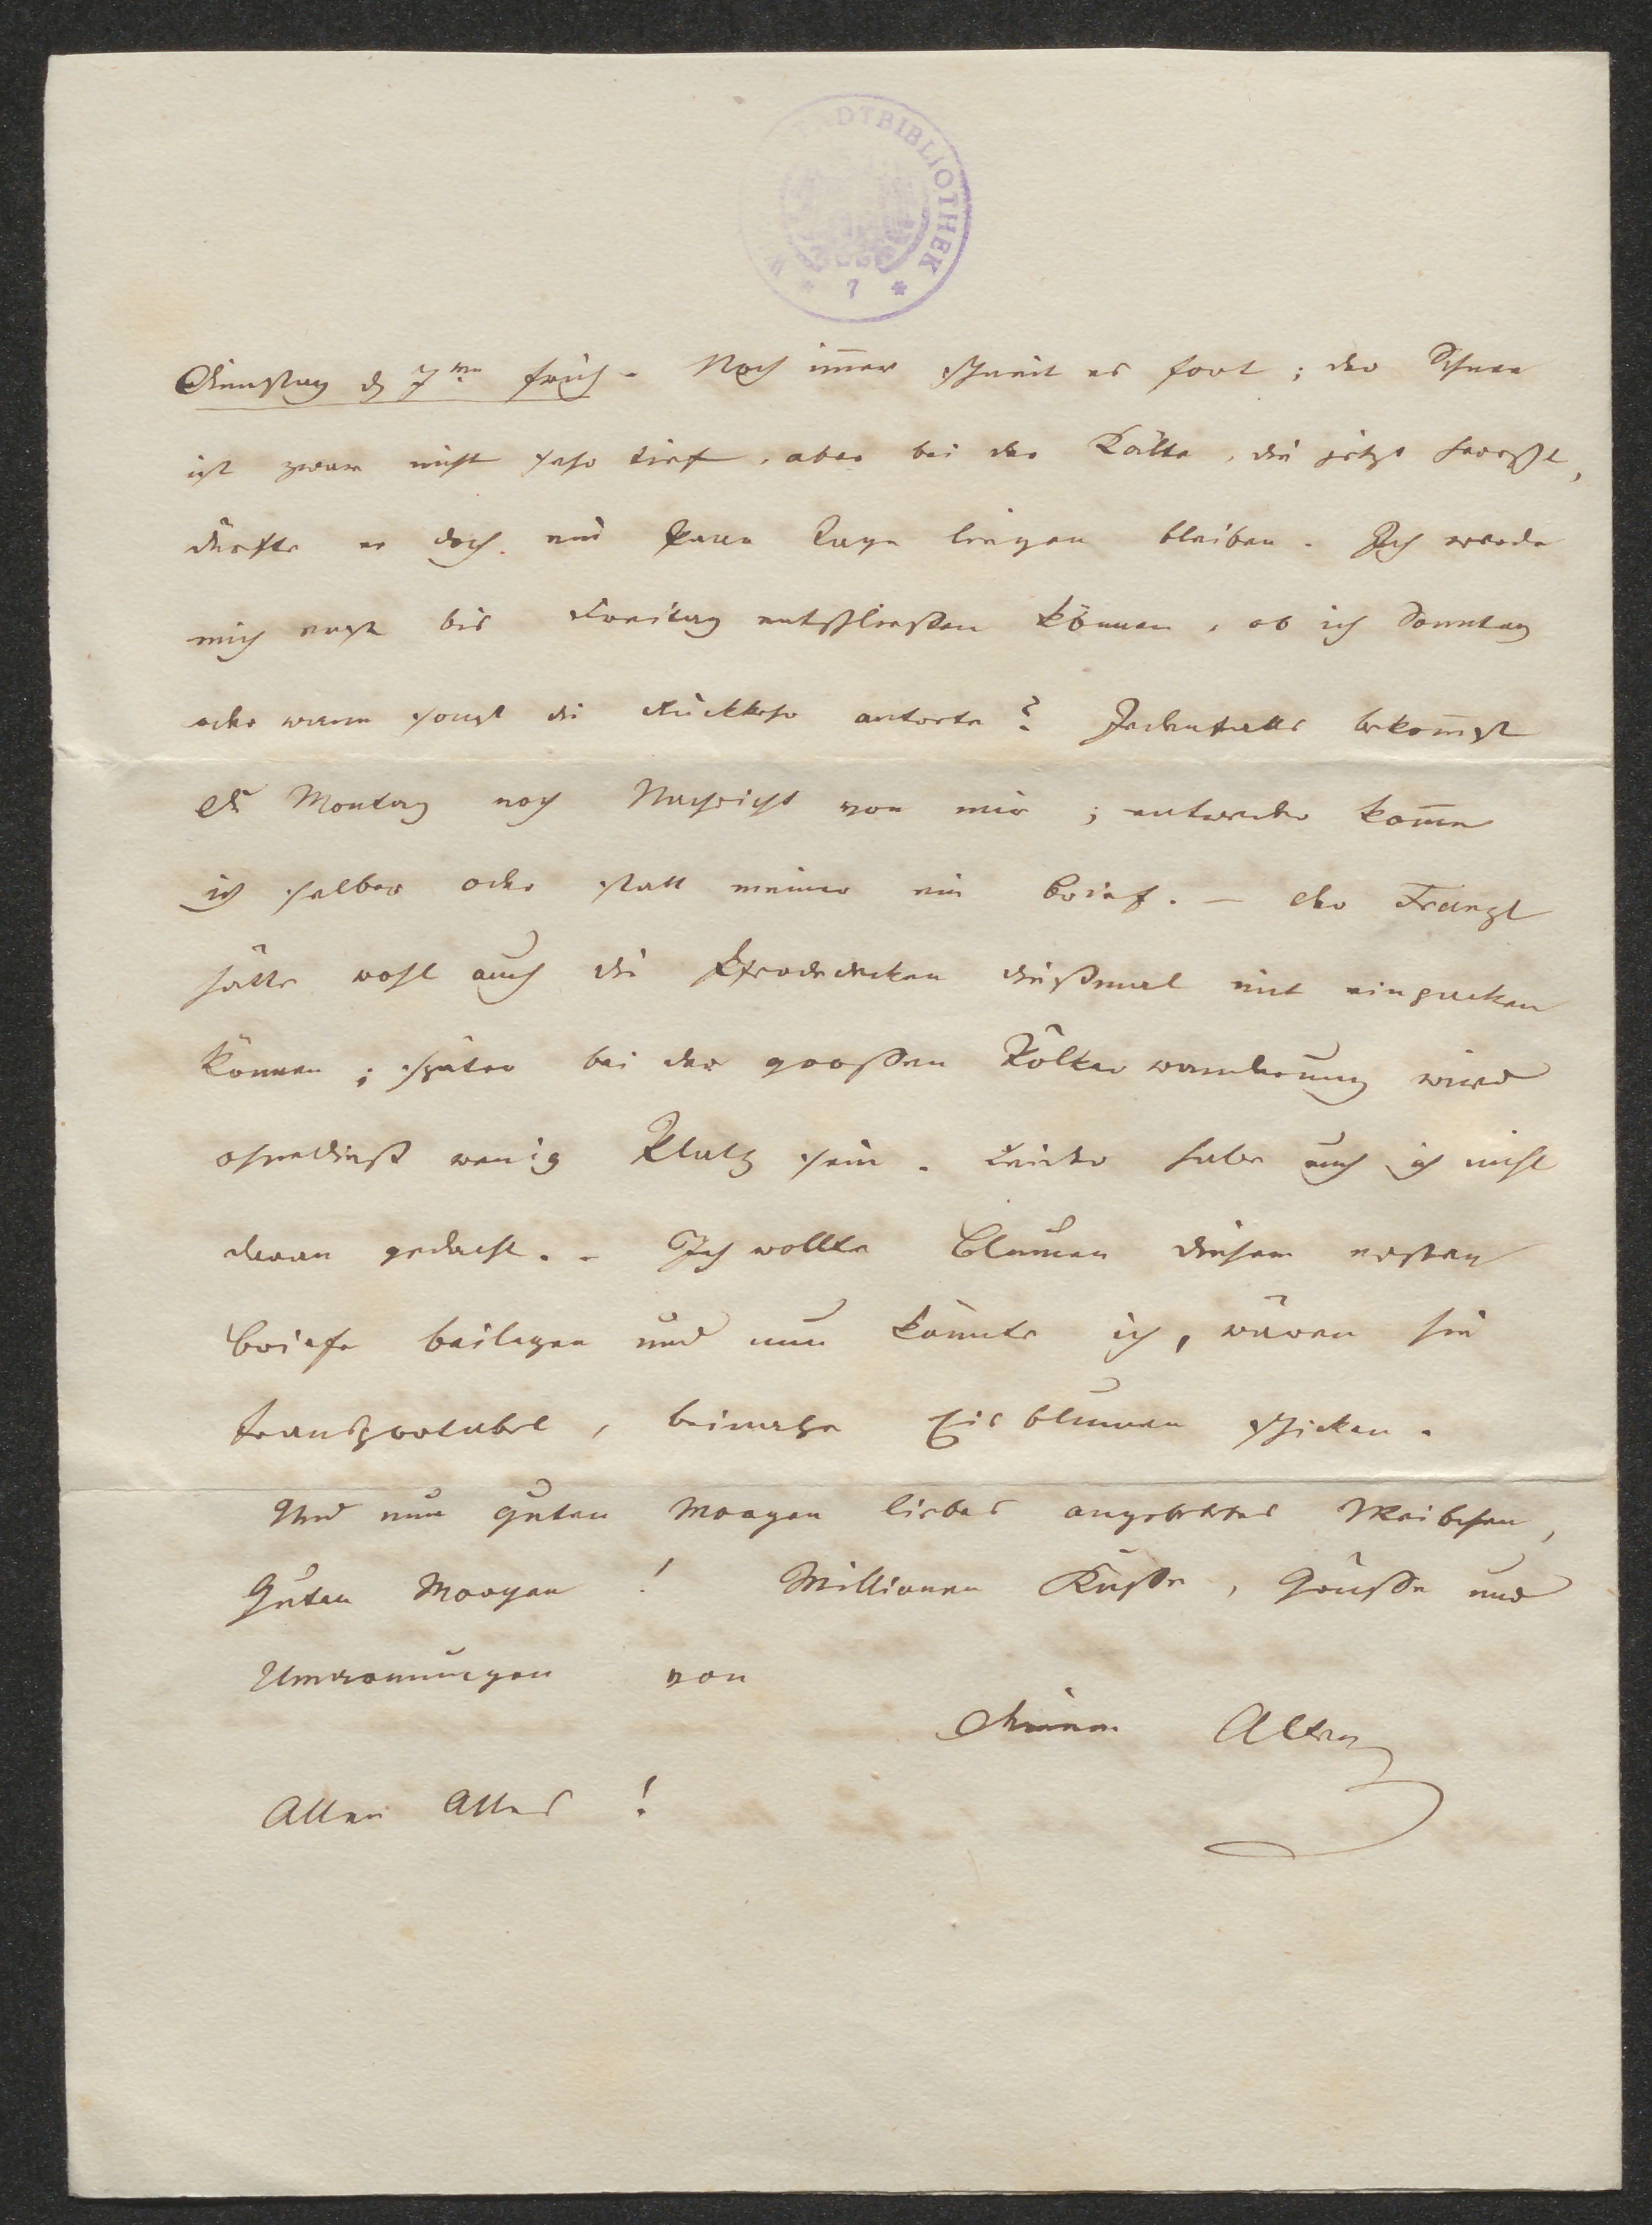 STADTBIBLIOTHEK
* 7 *
Dienstag d 7ten früh. Noch im̅er schneit es fort; der Schnee
ist zwar nicht sehr tief, aber bei der Kälte, die jetzt herrscht,
dürfte er doch ein paar Tage liegen bleiben. Ich werde
mich erst bis Freitag entschließen können, ob ich Sonntag
oder wann sonst die Rückkehr antrete? Jedenfalls bekom̅st
Du Montag noch Nachricht von mir; entweder kom̅e
ich selber oder statt meiner ein Brief. – Der Franzl
hätte wohl auch die Pferdedecken dießmal mit einpacken
können; später bei der großen Völkerwanderung wird
ohnedieß wenig Platz sein. Leider habe auch ich nicht
daran gedacht. – Ich wollte Blumen diesem ersten
Briefe beilegen und nun könnte ich, wären sie
transportabel, beinahe Eisblumen schicken.
Und nun guten Morgen liebes angebetetes Weibchen,
Guten Morgen! Millionen Küsse, Grüsse und
Umarmungen von
Deinem Alten
Allen Alles!